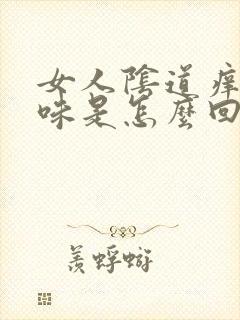 女人陰道癢
味是怎麼回
羨蜉蝣